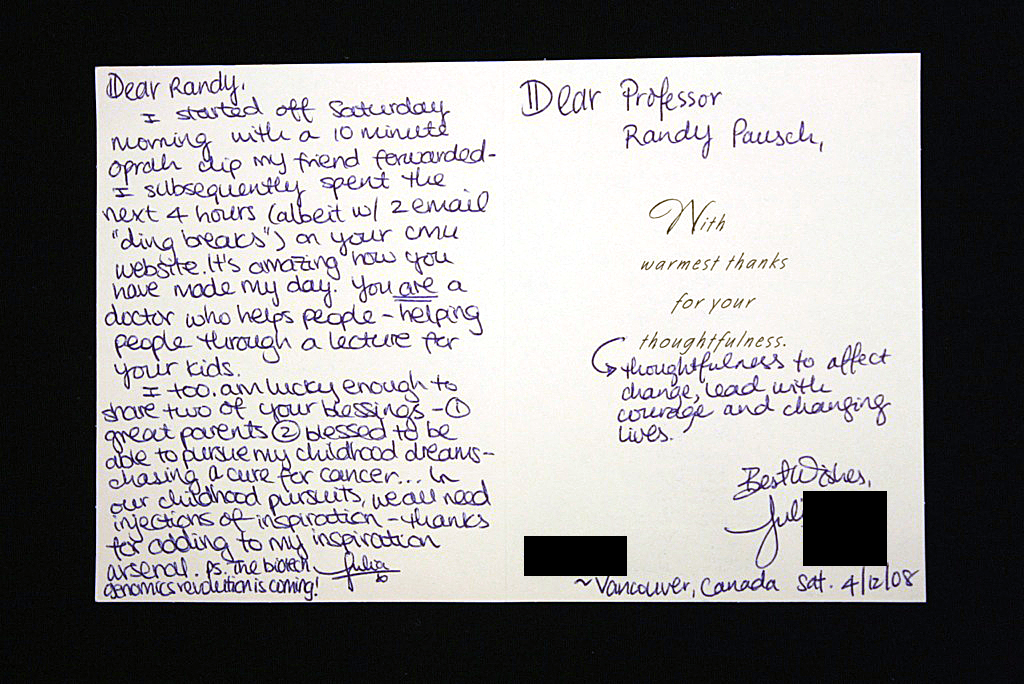 Dear Randy,
I started off Saturday
morning with a 10 minute
oprah clip my friend forwarded-
I subsequently spent the
next 4 hours (albeit w/ 2 email
"ding breaks") on your cmu
website. It's amazing how you
have made my day. You are a
doctor who helps people - helping
people through a lecture for
your kids.
I too, am lucky enough to
share two of your blessings - ①
great parents ② blessed to be
able to pursue my childhood dreams-
chasing a cure for cancer... In
our childhood pursuits, we all need
injections of inspiration - thanks
for adding to my inspiration
arsenal. ps. The biotech
genomics revolution is coming! Julia
Dear Professor
Randy Pausch,
With
warmest thanks
for your
thoughtfulness.
→ thoughtfulness to affect
change, lead with
courage and changing
lives.
Best Wishes,
Juli
~Vancouver, Canada Sat. 4/12/08